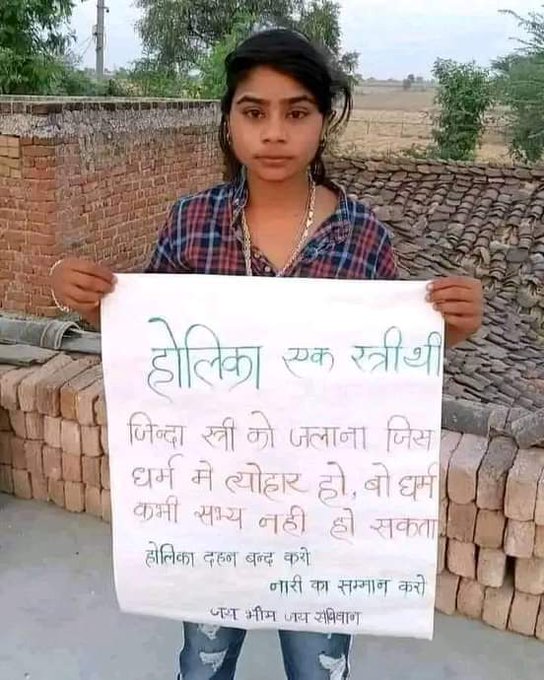 होलिका एक स्त्री थी
जिन्दा स्त्री को जलाना जिस
धर्म मे त्योहार हो, वो धर्म
कभी सभ्य नही हो सकता
होलिका दहन बन्द करो
नारी का सम्मान करो
जय भीम जय संविधान